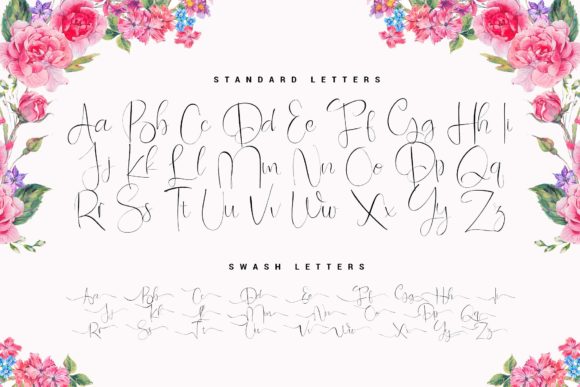 STANDARD LETTERS
Aa Bb Cc Dd Ee Ff Gg Hh Ii
Jj Kk Ll Mm Nn Oo Pp Qq
Rr Ss Tt Uu Vv Ww Xx Yy Zz
SWASH LETTERS
Aa Bb Cc Dd Ee Ff Gg Hh Ii
Jj Kk Ll Mm Nn Oo Pp Qq
Rr Ss Tt Uu Vv Ww Xx Yy Zz